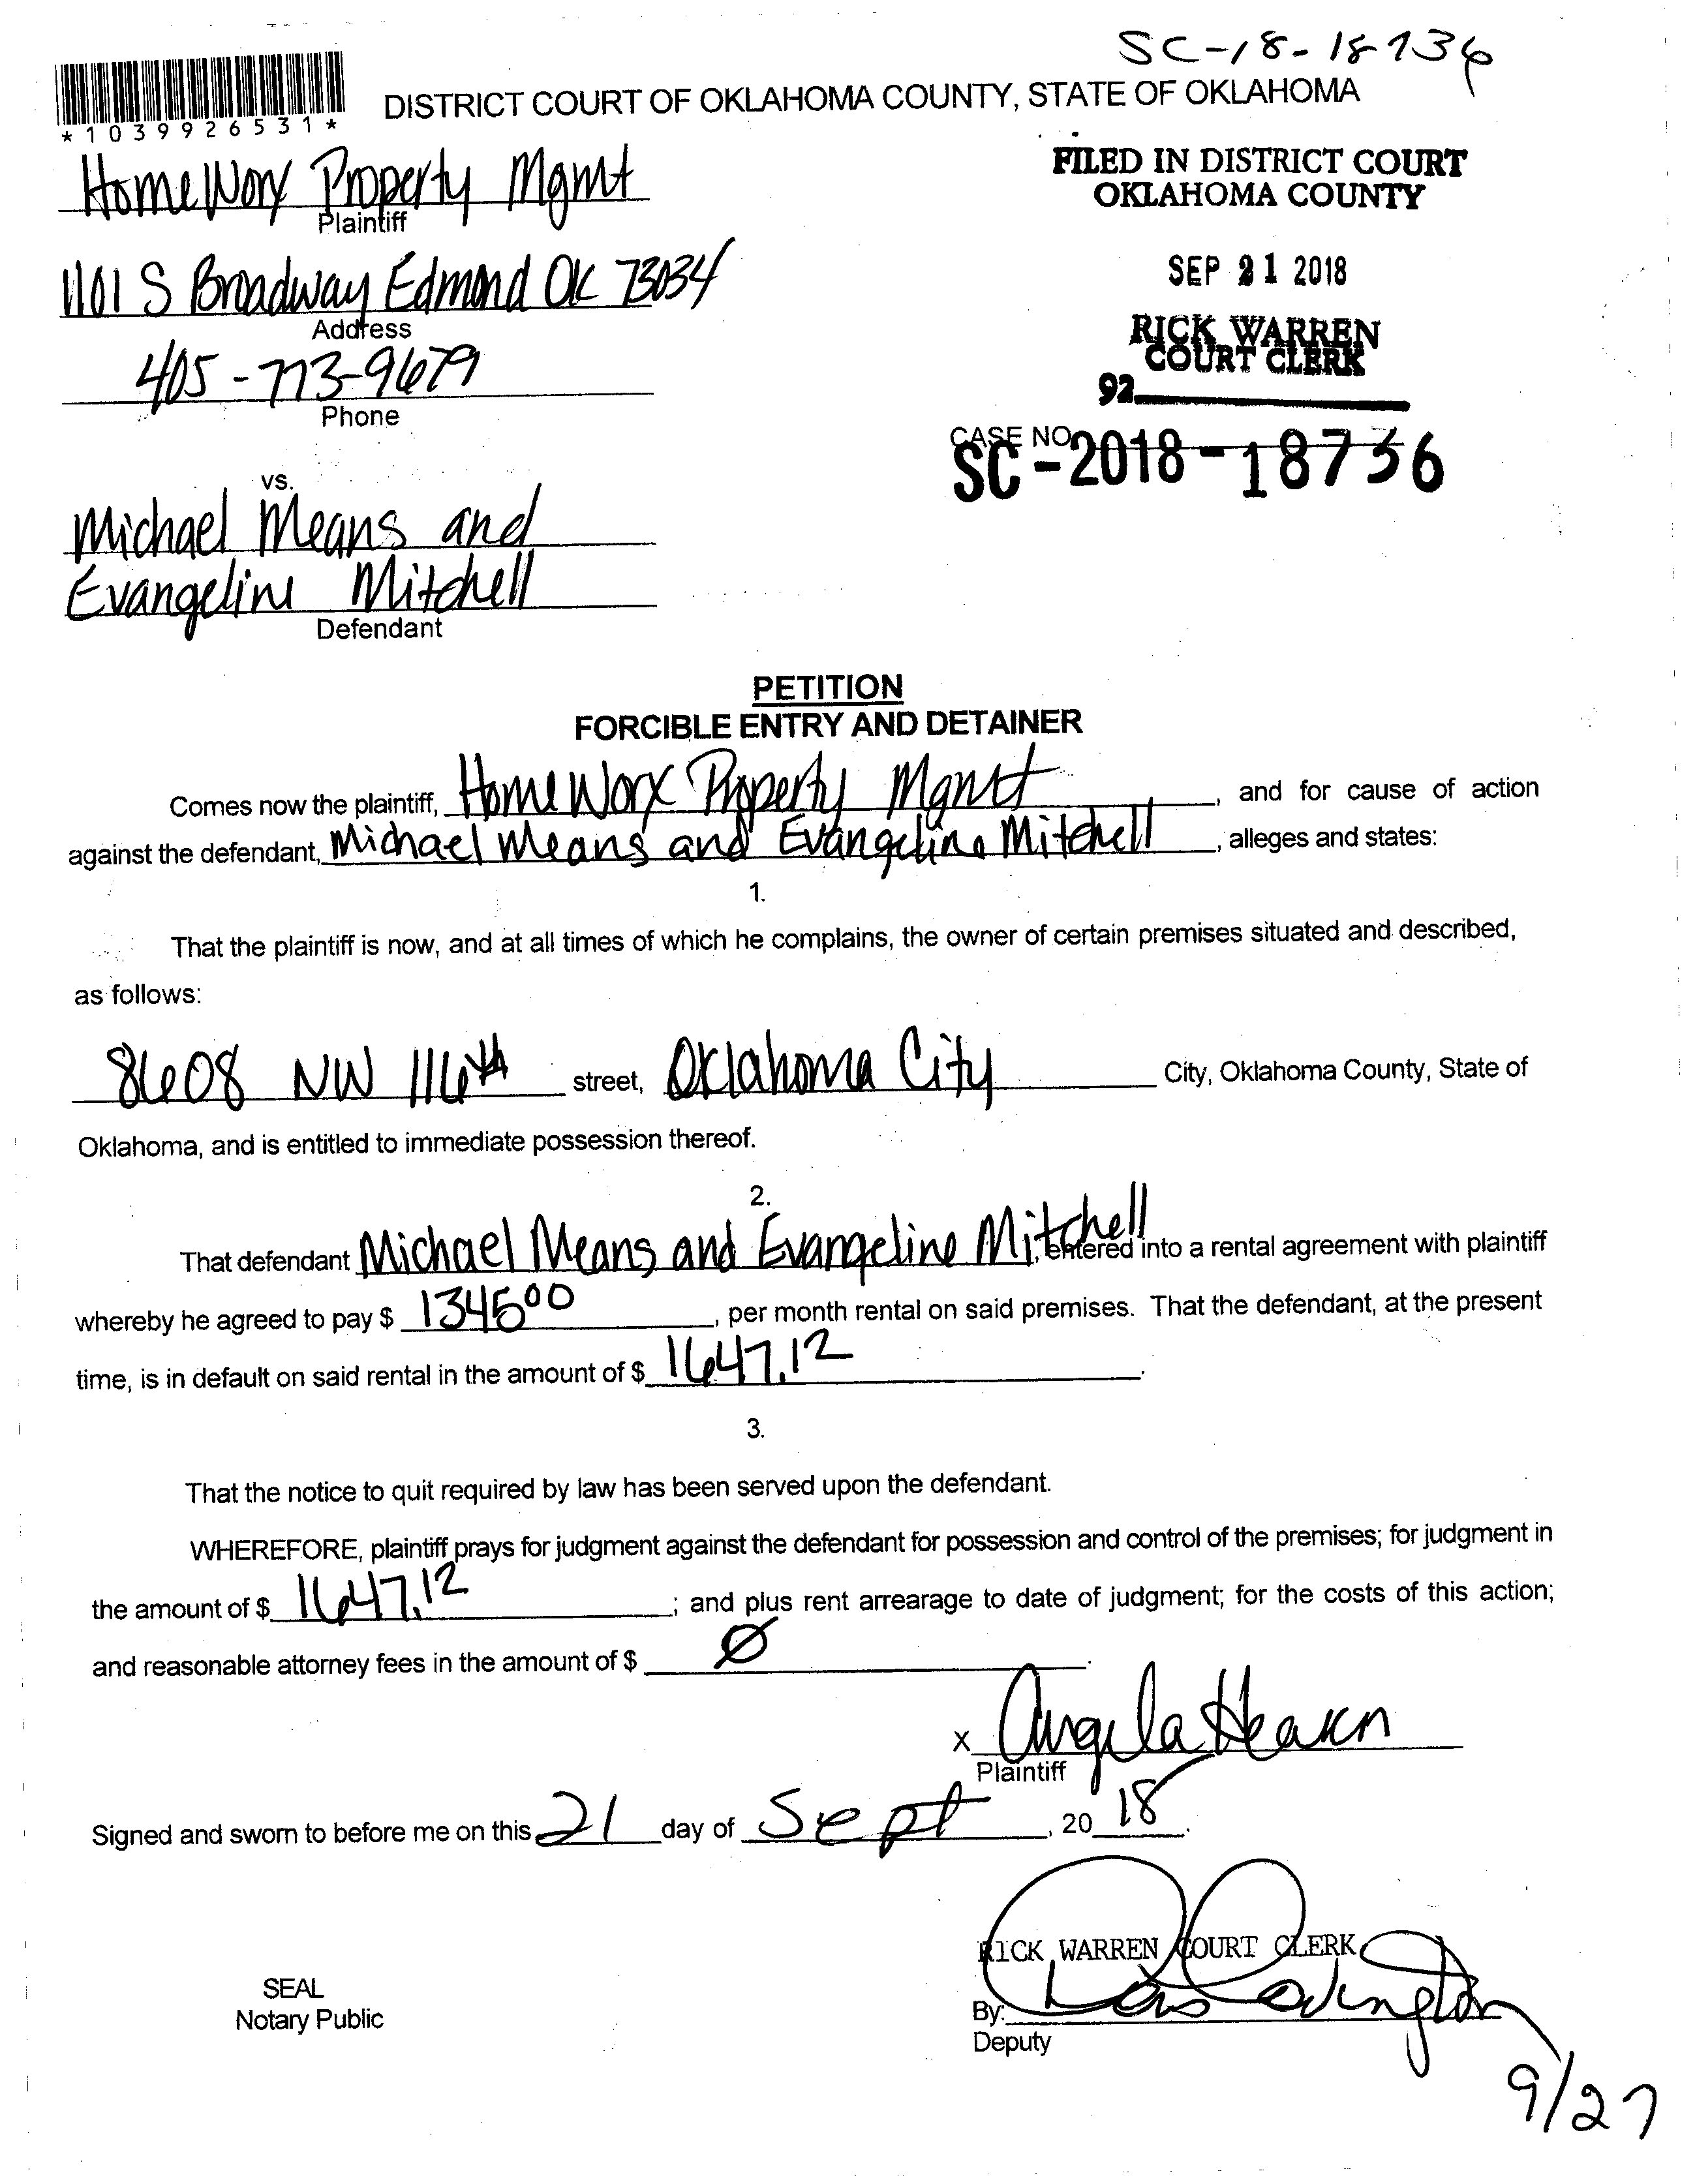 SC-18-18736
*1039926531*
DISTRICT COURT OF OKLAHOMA COUNTY, STATE OF OKLAHOMA
HomeWorx Property Mgmt
Plaintiff
FILED IN DISTRICT COURT
OKLAHOMA COUNTY
1101 S Broadway Edmond OK 73034
Address
SEP 21 2018
405-773-9679
Phone
RICK WARREN
COURT CLERK
92
CASE NO.
SC-2018-18736
vs.
Michael Means and
Evangeline Mitchell
Defendant
PETITION
FORCIBLE ENTRY AND DETAINER
Comes now the plaintiff, HomeWorx Property Mgmt, and for cause of action
against the defendant, Michael Means and Evangeline Mitchell, alleges and states:
1.
That the plaintiff is now, and at all times of which he complains, the owner of certain premises situated and described,
as follows:
8608 NW 116th street, Oklahoma City City, Oklahoma County, State of
Oklahoma, and is entitled to immediate possession thereof.
2.
That defendant Michael Means and Evangeline Mitchell, entered into a rental agreement with plaintiff
whereby he agreed to pay $ 1345.00, per month rental on said premises. That the defendant, at the present
time, is in default on said rental in the amount of $ 1647.12.
3.
That the notice to quit required by law has been served upon the defendant.
WHEREFORE, plaintiff prays for judgment against the defendant for possession and control of the premises; for judgment in
the amount of $ 1647.12; and plus rent arrearage to date of judgment; for the costs of this action;
and reasonable attorney fees in the amount of $ Ø.
X Angela Hearn
Plaintiff
Signed and sworn to before me on this 21 day of Sept, 20 18.
RICK WARREN COURT CLERK
SEAL
Notary Public
By: Covington
Deputy
9/27